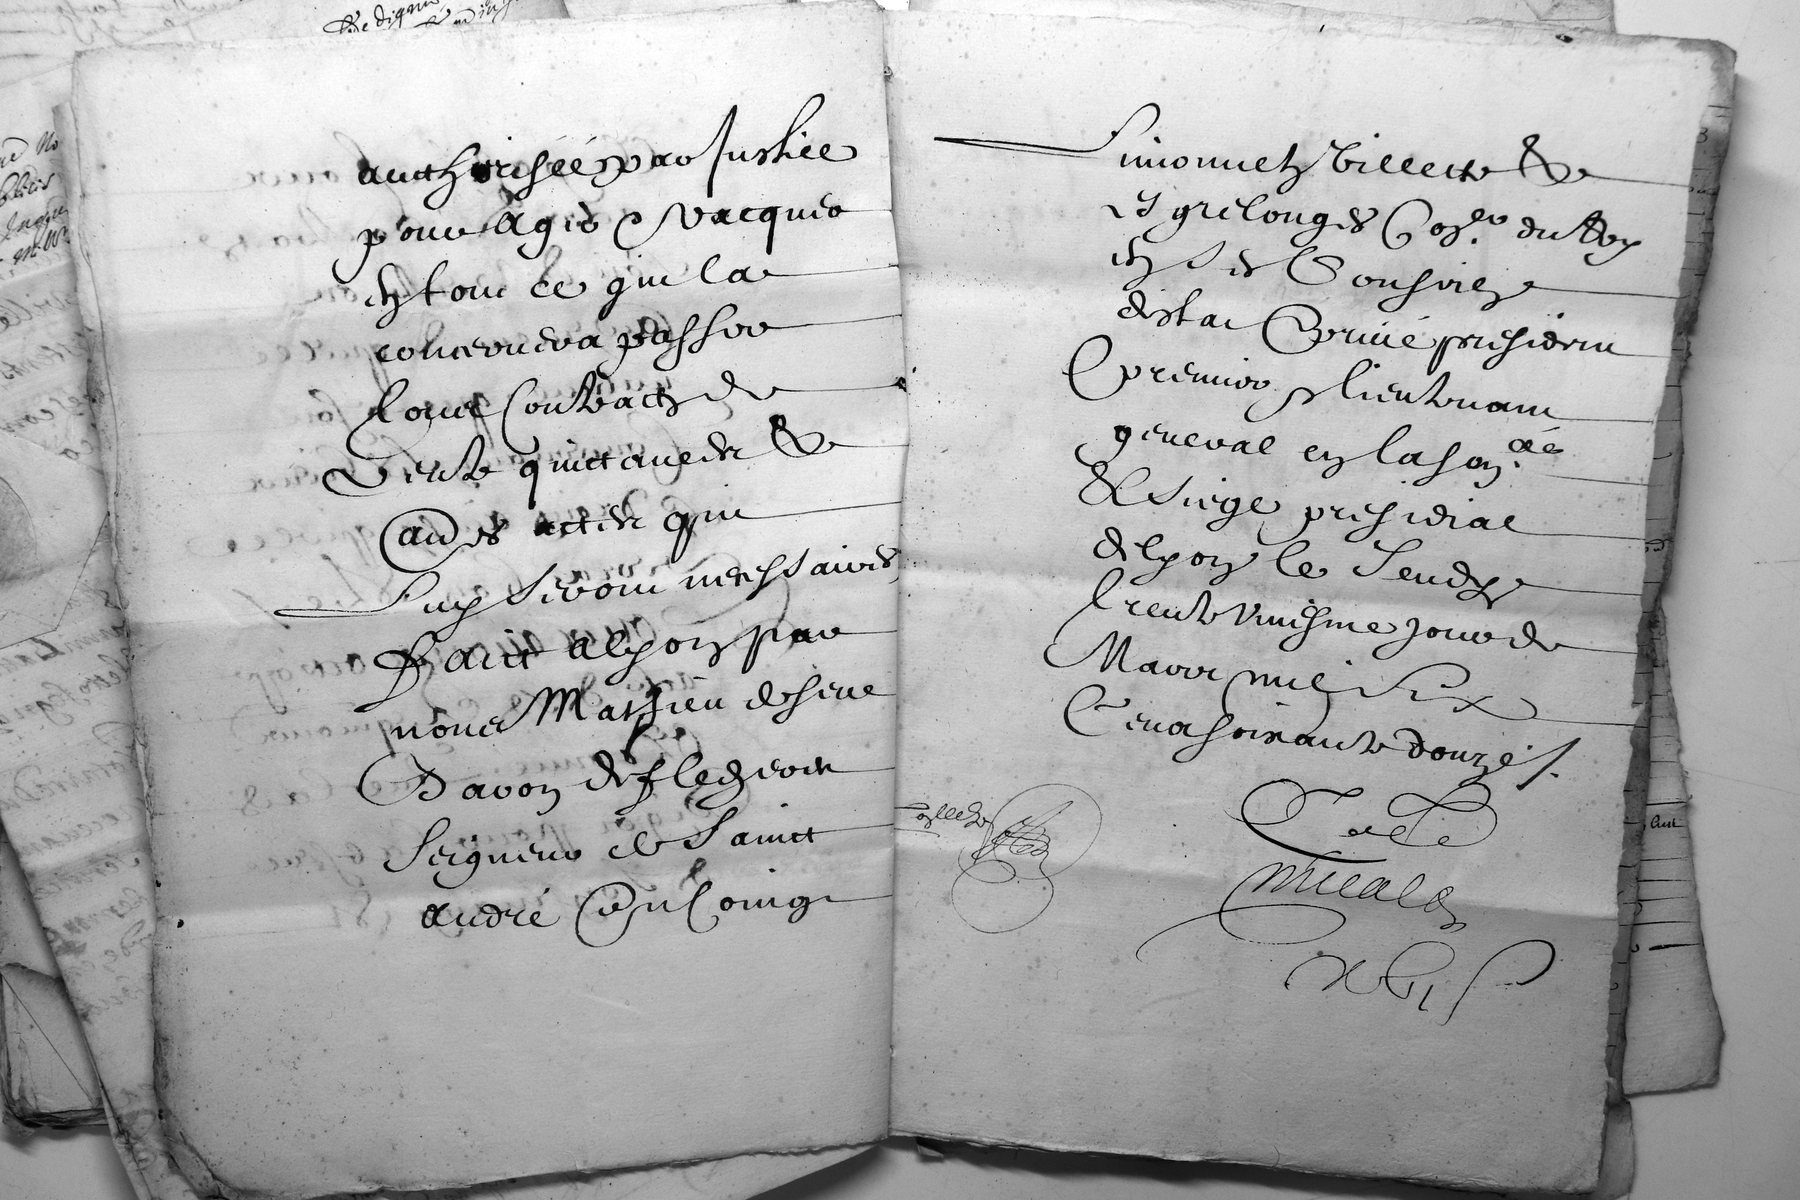 aucthorisée par Justice
pour Agir & vacquer
en tout ce qui la
concernera passer
tous Contractz de
Vente quittances &
Au{tr}es actes qui
Luy seront necessaires
Faict a lyon par
nous Mathieu de seve
Baron de flecheres
Seigneur de Sainct
André en Coing
Limonnetz Villette &
et grelonges Con.er du Roy
en ses Conseilz
destat & privé president
premier & lieutenant
general en la sen.ée
& siege presidial
de lyon le Jeudy
trente uniesme jour de
Mars mil Six
Centz soixante douze